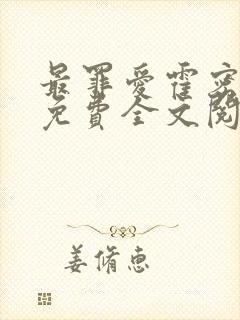 最罪爱霍密
免费全文阅
姜脩惠